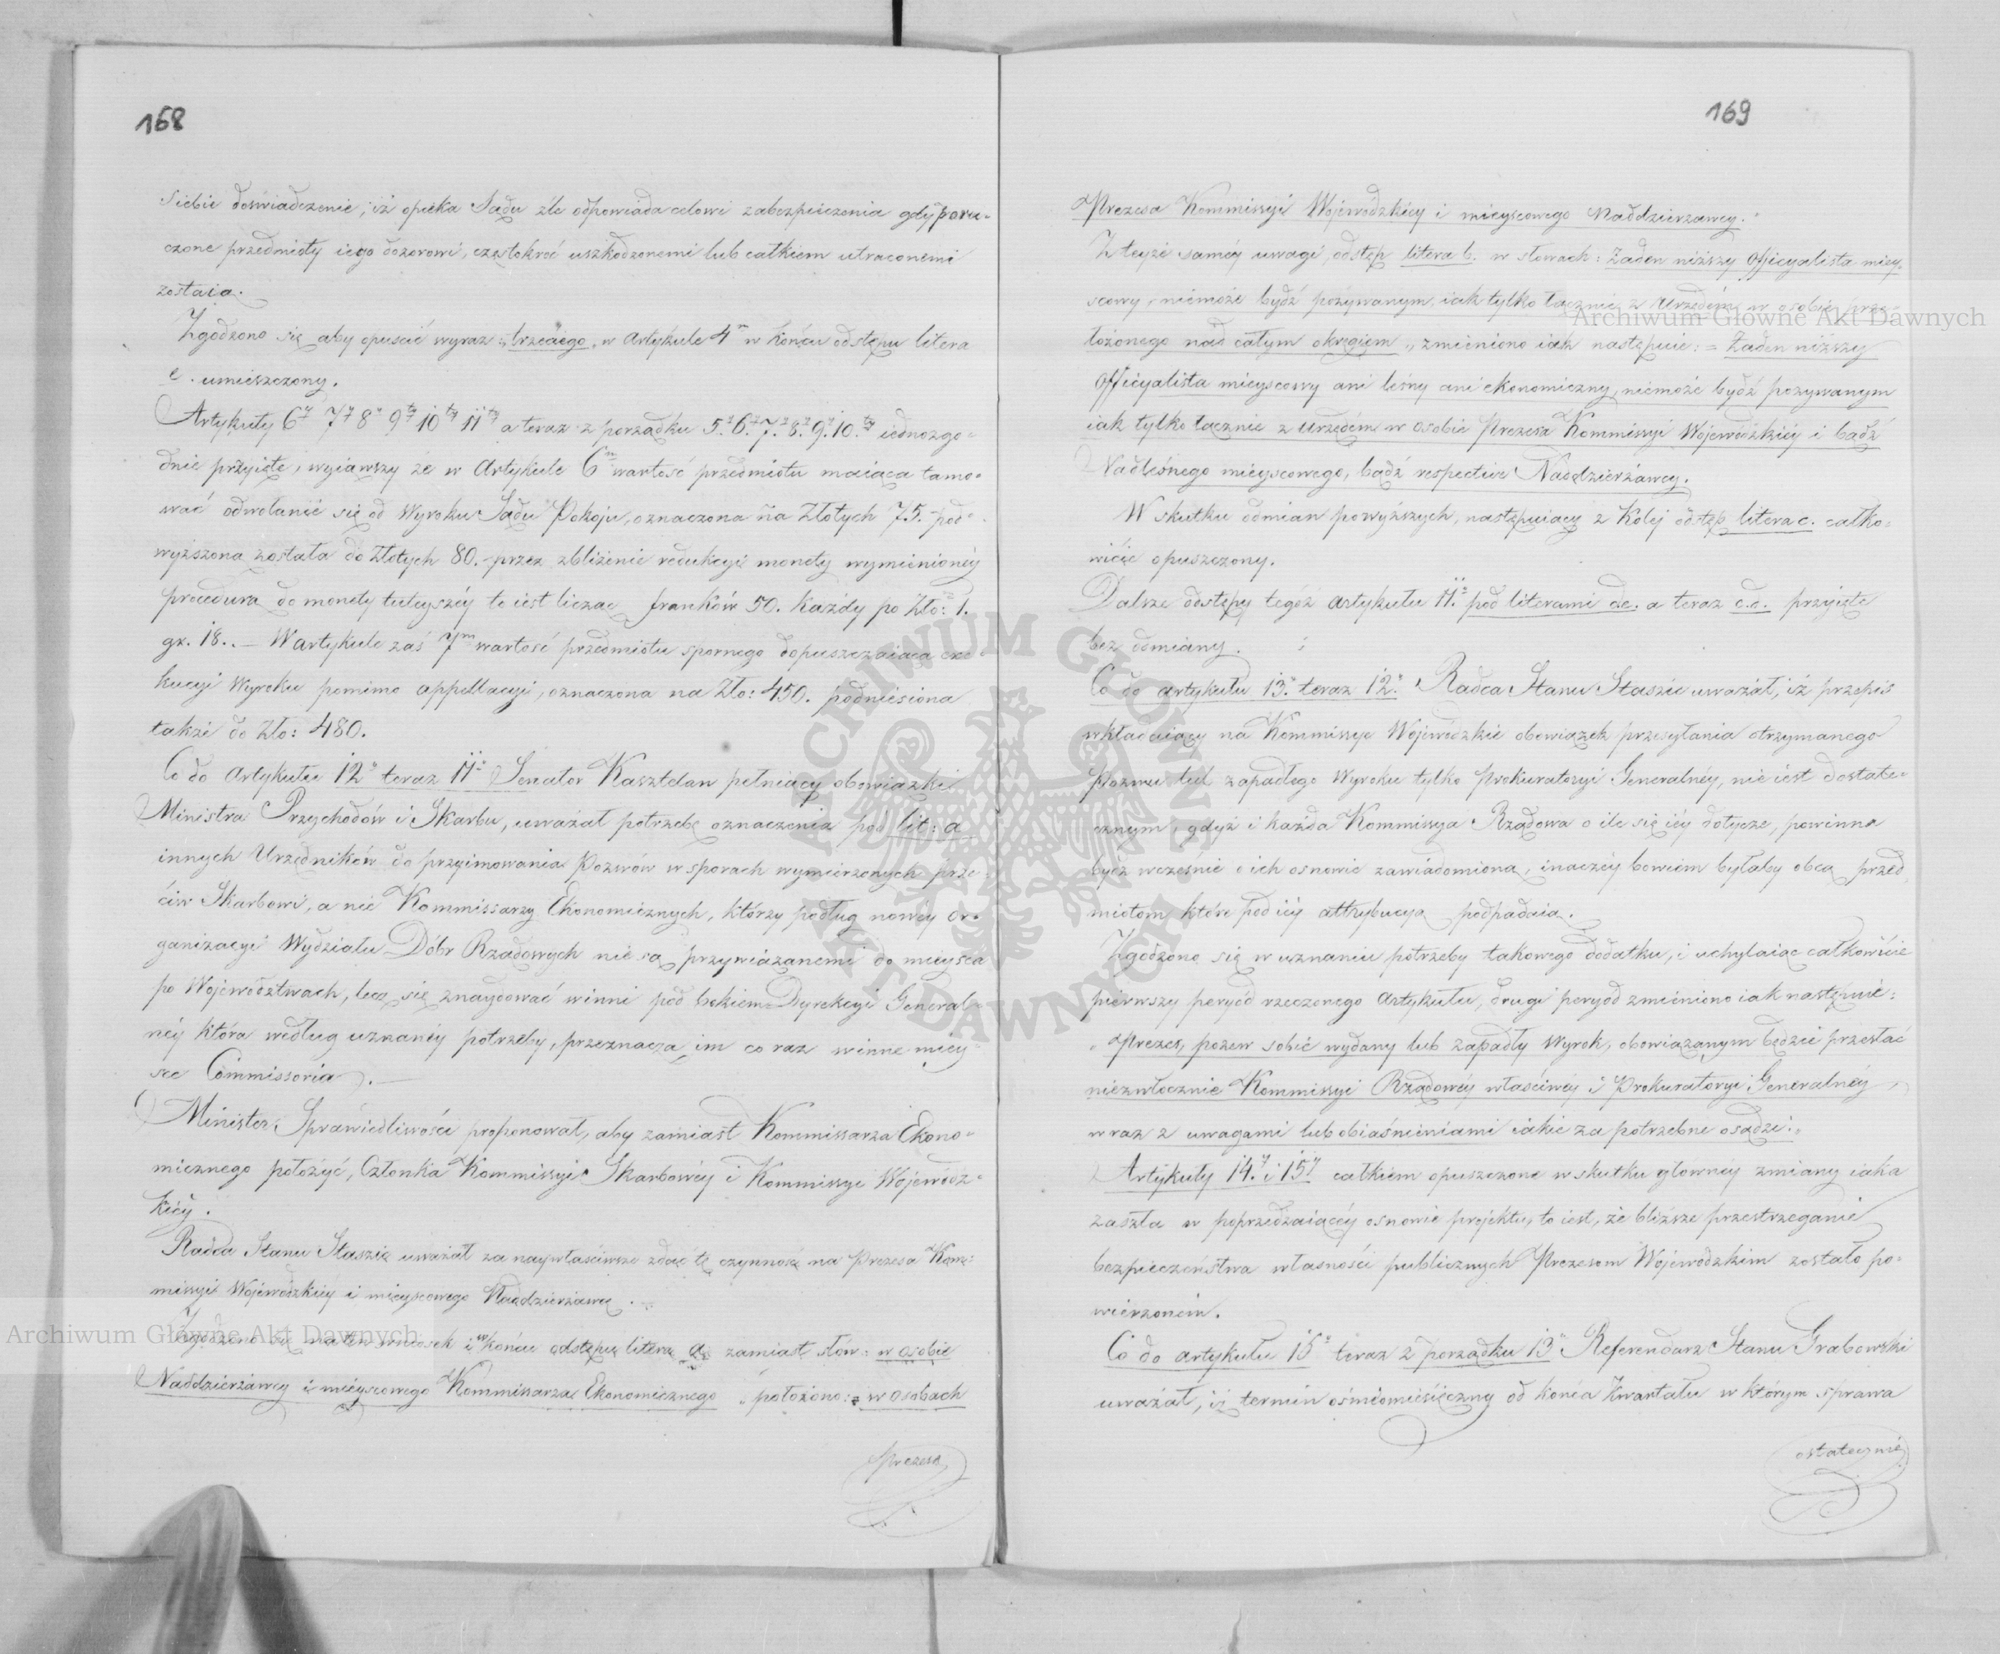 168
siebie doświadczenie, iż opieka Sądu źle odpowiada celowi zabezpieczenia gdy poru-
czone przedmioty iego dozorowi, częstokroć uszkodzonemi lub całkiem utraconemi
zostaią.
Zgodzono się aby opuścić wyraz „trzeciego„ w Artykule 4m w końcu odstępu litera
e. umieszczony.
Artykuły 6y 7y 8y 9ty 10ty 11ty a teraz z porządku 5.y 6.y 7.y 8.y 9.y 10.ty iednozgo-
dnie przyięte, wyiąwszy że w Artykule 6m wartość przedmiotu maiąca tamo-
wać odwołanie się od Wyroku Sądu Pokoju, oznaczona na Złotych 75. pod-
wyższona została do Złotych 80. przez zbliżenie redukcyi monety wymienionéy
procedurą do monety tuteyszéy to iest licząc franków 50. każdy po Zło: 1.
gr. 18.. — W artykule zaś 7m wartość przedmiotu spornego dopuszczaiąca exe-
kucyi Wyroku pomimo appellacyi, oznaczona na Zło: 450. podniesiona
także do Zło: 480.
Co do Artykułu 12o teraz 11o Senator Kasztelan pełniący obowiązki
Ministra Przychodów i Skarbu, uważał potrzebę oznaczenia pod lit: a
innych Urzędników do przyimowania Pozwów w sporach wymierzonych prze-
ciw Skarbowi, a nie Kommissarzy Ekonomicznych, którzy podług nowéy or-
ganizacyi Wydziału Dóbr Rządowych nie są przywiązanemi do mieysca
po Województwach, lecz się znaydować winni pod bokiem Dyrekcyi General-
néy która według uznanéy potrzeby, przeznacza im co raz w inne miey-
sce Commissoria. —
Minister Sprawiedliwości proponował, aby zamiast Kommissarza Ekono-
micznego położyć, Członka Kommissyi Skarbowéy i Kommissyi Wojewódz-
kiéy.
Radca Stanu Staszic uważał za naywłaściwsze zdać tę czynność na Prezesa Kom-
missyi Wojewódzkiéy i mieyscowego Naddzierżawcę.
Zgodzono się na ten wniosek i w końcu odstępu litera a, zamiast słów: w osobie
Naddzierżawcy i mieyscowego Kommissarza Ekonomicznego „ położono: „ w osobach
Prezesa
169
Prezesa Kommissyi Wojewódzkiéy i mieyscowego Naddzierżawcy.„
Z teyże saméy uwagi odstęp litera b. w słowach: Żaden niższy Officyalista miey-
scowy, niemoże bydź pozywanym, iak tylko łącznie z Urzędem w osobie prze-
łożonego nad całym okręgiem „ zmieniono iak następuie: = Żaden niższy
Officyalista mieyscowy ani leśny ani ekonomiczny, niemoże bydź pozywanym
iak tylko łącznie z Urzędem w osobie Prezesa Kommissyi Wojewódzkiéy i bądź
Nadleśnego mieyscowego, bądź respective Naddzierżawcy.
W skutku odmian powyższych, następuiący z kolej odstęp litera c. całko-
wicie opuszczony.
Dalsze odstępy tegóż artykułu 11.o pod literami d.e. a teraz c.d. przyięte
bez odmiany.
Co do artykułu 13.o teraz 12.o Radca Stanu Staszic uważał, iż przepis
wkładaiący na Kommissye Wojewódzkie obowiązek przesyłania otrzymanego
Pozwu lub zapadłego Wyroku tylko Prokuratoryi Generalnéy, nie iest dostate-
cznym, gdyż i każda Kommissya Rządowa o ile się iéy dotycze, powinna
bydź wcześnie o ich osnowie zawiadomiona, inaczéy bowiem byłaby obcą przed-
miotom które pod iéy attrybucyą podpadaią.
Zgodzono się w uznaniu potrzeby takowego dodatku, i uchylaiąc całkowicie
pierwszy peryód rzeczonego Artykułu, drugi peryód zmieniono iak następuie:
„ Prezes, pozew sobie wydany lub zapadły Wyrok, obowiązanym będzie przesłać
niezwłocznie Kommissyi Rządowéy właściwéy i Prokuratoryi Generalnéy,
wraz z uwagami lub obiaśnieniami iakie za potrzebne osądzi.„
Artykuły 14.y i 15y całkiem opuszczone w skutku głownéy zmiany iaka
zaszła w poprzedzaiącéy osnowie projektu, to iest, że bliższe przestrzeganie
bezpieczeństwa własności publicznych Prezesom Wojewódzkim zostało po-
wierzonem.
Co do artykułu 16o teraz z porządku 13o Referendarz Stanu Grabowski
uważał, iż termin ośmiomiesięczny od końca Kwartału w którym sprawa
ostatecznie
Archiwum Główne Akt Dawnych
Archiwum Główne Akt Dawnych
ARCHIWUM GŁÓWNE AKT DAWNYCH